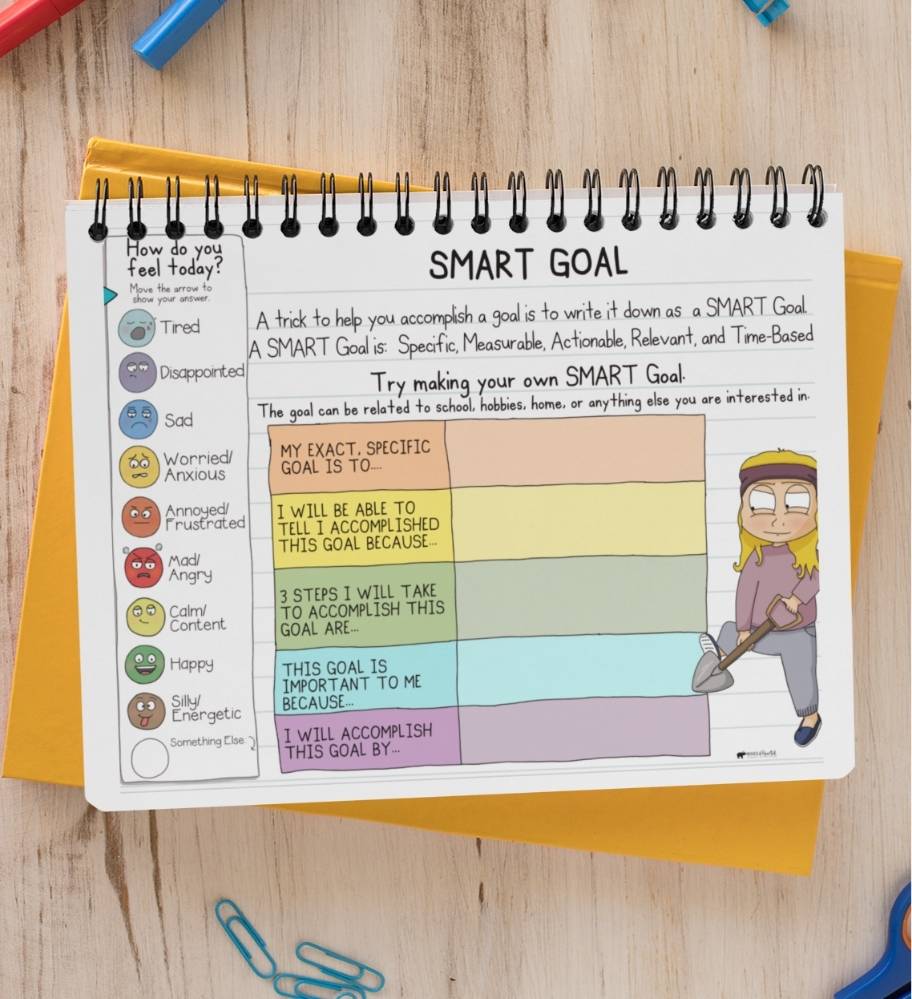 How do you
feel today?
Move the arrow to
show your answer.
Tired
Disappointed
Sad
Worried/
Anxious
Annoyed/
Frustrated
Mad/
Angry
Calm/
Content
Happy
Silly/
Energetic
Something Else
SMART GOAL
A trick to help you accomplish a goal is to write it down as a SMART Goal.
A SMART Goal is: Specific, Measurable, Actionable, Relevant, and Time-Based
Try making your own SMART Goal.
The goal can be related to school, hobbies, home, or anything else you are interested in.
MY EXACT, SPECIFIC
GOAL IS TO....
I WILL BE ABLE TO
TELL I ACCOMPLISHED
THIS GOAL BECAUSE...
3 STEPS I WILL TAKE
TO ACCOMPLISH THIS
GOAL ARE...
THIS GOAL IS
IMPORTANT TO ME
BECAUSE...
I WILL ACCOMPLISH
THIS GOAL BY...